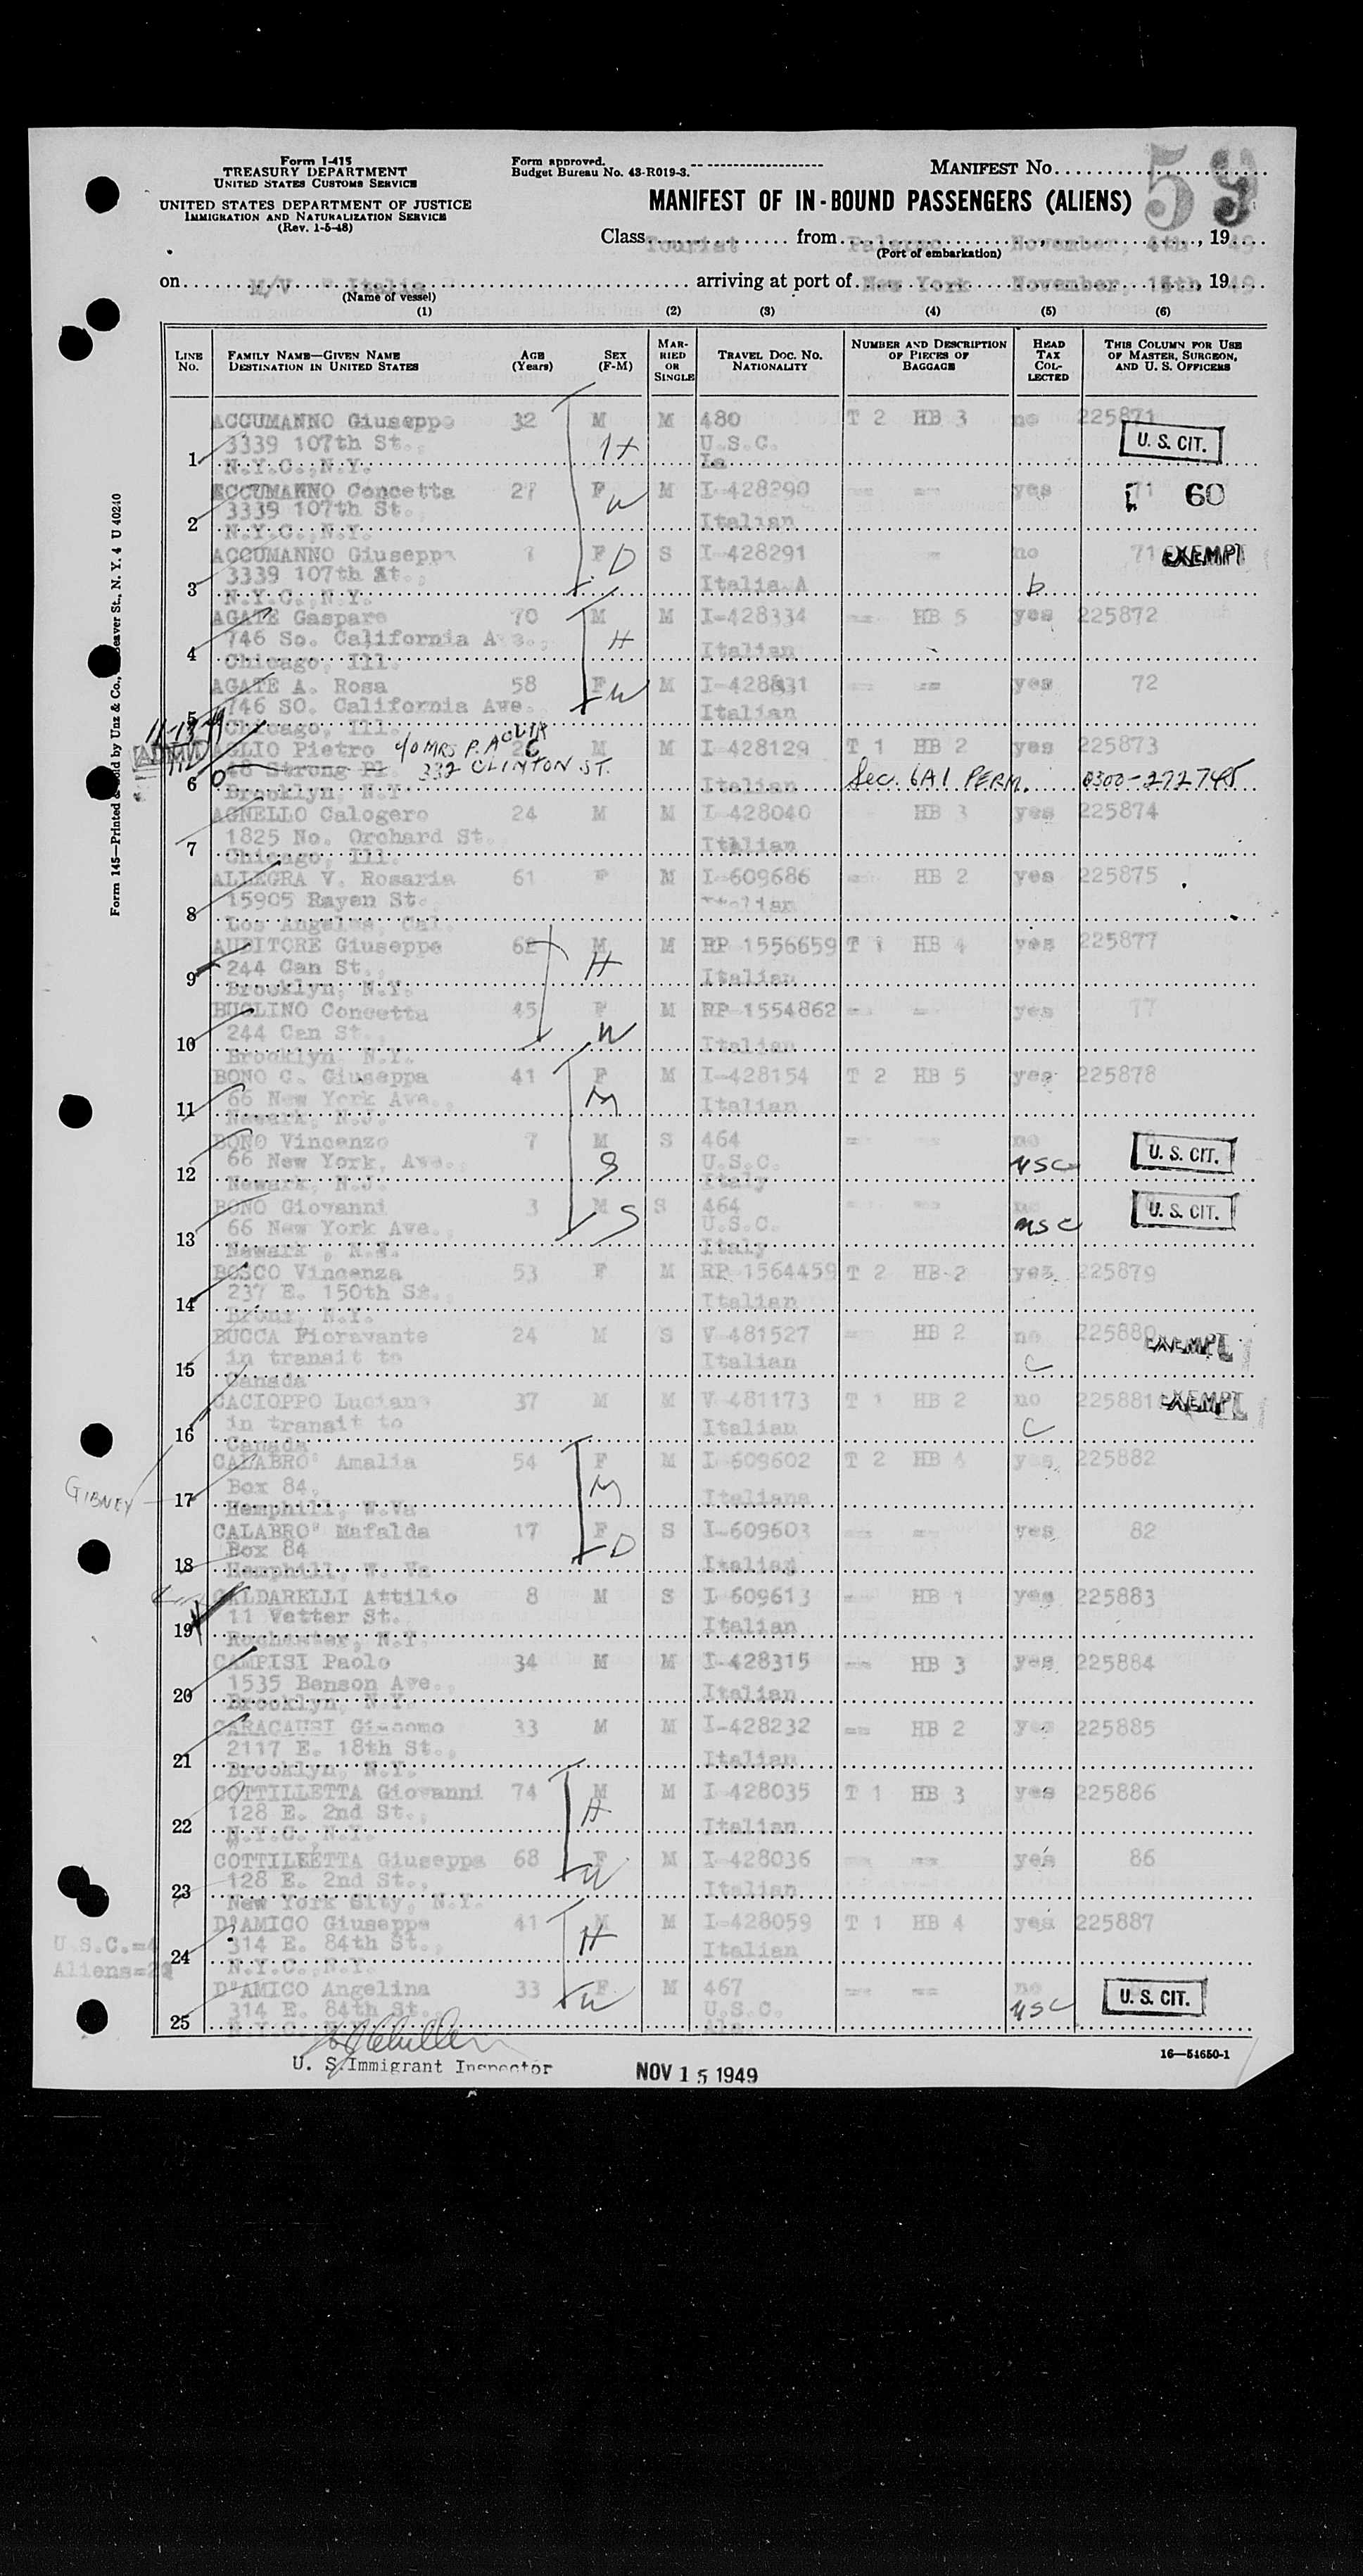 Form I-415
TREASURY DEPARTMENT
UNITED STATES CUSTOMS SERVICE
UNITED STATES DEPARTMENT OF JUSTICE
IMMIGRATION AND NATURALIZATION SERVICE
(Rev. 1-5-48)
Form approved.
Budget Bureau No. 43-R019-3.
MANIFEST No. 59
MANIFEST OF IN-BOUND PASSENGERS (ALIENS)
Class Tourist from Palermo November, 4th, 1949
(Port of embarkation)
on M/V "Italia" arriving at port of New York November, 15th, 1949
(Name of vessel)
(1) (2) (3) (4) (5) (6)
LINE No. FAMILY NAME—GIVEN NAME DESTINATION IN UNITED STATES AGE (Years) SEX (F-M) MARRIED OR SINGLE TRAVEL DOC. NO. NATIONALITY NUMBER AND DESCRIPTION OF PIECES OF BAGGAGE HEAD TAX COLLECTED THIS COLUMN FOR USE OF MASTER, SURGEON, AND U. S. OFFICERS
ACCUMANNO Giuseppe 32 M M 480 T 2 HB 3 no 225871
3339 107th St., H U.S.C. U. S. CIT.
1 N.Y.C., N.Y.
ACCUMANNO Concetta 27 F M I-428290 == == yes 71 60
3339 107th St. W
2 N.Y.C., N.Y. Italian
ACCUMANNO Giuseppa F D S I-428291 = no 71 EXEMPT
3339 107th St., Italia b
3 N.Y.C., N.Y.
AGATE Gaspare 70 M M I-428334 == HB 5 yes 225872
746 So. California Ave., H Italian
4 Chicago, Ill.
AGATE A. Rosa 58 F W M I-428831 == == yes 72
5 746 SO. California Ave. Italian
Chicago, Ill.
11-17-49 ADM'D
AGLIO Pietro c/o MRS P. M M I-428129 T 1 HB 2 yes 225873
48 Strong Pl 332 CLINTON ST. Sec. 6A1 PERM. 0300-272745
6 Brooklyn, N.Y. Italian
AGNELLO Calogero 24 M M I-428040 HB 3 yes 225874
1825 No. Orchard St. Italian
7 Chicago, Ill.
ALLEGRA V. Rosaria 61 F M I-609686 = HB 2 yes 225875
15905 Rayen St. Italian
8 Los Angeles, Cal.
AUDITORE Giuseppe 62 M M RP 1556659 T 1 HB 4 yes 225877
244 Can St., H
9 Brooklyn, N.Y. Italian
BUGLINO Concetta 45 F M RP 1554862 == = yes 77
244 Can St., W
10 Brooklyn, N.Y. Italian
BONO C. Giuseppa 41 F M I-428154 T 2 HB 5 yes 225878
66 New York Ave., M
11 Newark, N.J. Italian
BONO Vincenzo 7 M S 464 == = no
66 New York, Ave., S U.S.C. USC U. S. CIT.
12 Newark, N.J. Italy
BONO Giovanni 3 M S S 464 == == no
66 New York Ave., U.S.C. USC U. S. CIT.
13 Newark, Italy
BOSCO Vincenza 53 F M RP 1564459 T 2 HB 2 yes 225879
237 E. 150th St.,
14 Bronx, N.Y. Italian
BUCCA Fioravante 24 M S V-481527 = HB 2 no 225880 EXEMPT
in transit to C
15 Canada Italian
CACIOPPO Luciano 37 M M V-481173 T 1 HB 2 no 225881 EXEMPT
in transit to C
16 Canada Italian
CALABRO' Amalia 54 F M I-609602 T 2 HB 4 yes 225882
GIBNEY Box 84, M
17 Hemphill, W.Va Italiana
CALABRO' Mafalda 17 F S I-609603 == == yes 82
Box 84 D
18 Hemphill, W. Va Italian
CALDARELLI Attilio 8 M S I 609613 == HB 1 yes 225883
11 Vetter St.
19 Rochester, N.Y. Italian
CAMPISI Paolo 34 M M I-428315 == HB 3 yes 225884
1535 Benson Ave.,
20 Brooklyn, N.Y. Italian
CARACAUSI Giacomo 33 M M I-428232 == HB 2 yes 225885
2117 E. 18th St.,
21 Brooklyn, N.Y. Italian
COTTILLETTA Giovanni 74 M M I-428035 T 1 HB 3 yes 225886
128 E. 2nd St., H
22 N.Y.C., N.Y. Italian
COTTILLETTA Giuseppa 68 F M I-428036 == == yes 86
128 E. 2nd St., W
23 New York City, N.Y. Italian
D'AMICO Giuseppe 41 M M I-428059 T 1 HB 4 yes 225887
U.S.C.=4 314 E. 84th St., H
24 N.Y.C., N.Y. Italian
Aliens=21
D'AMICO Angelina 33 F M 467 == == no
314 E. 84th St. W U.S.C. USC U. S. CIT.
25 N.Y.C.
U. S. Immigrant Inspector NOV 15 1949
16—54650-1
Form 145—Printed & Sold by Unz & Co., Beaver St., N. Y. 4 U 40240